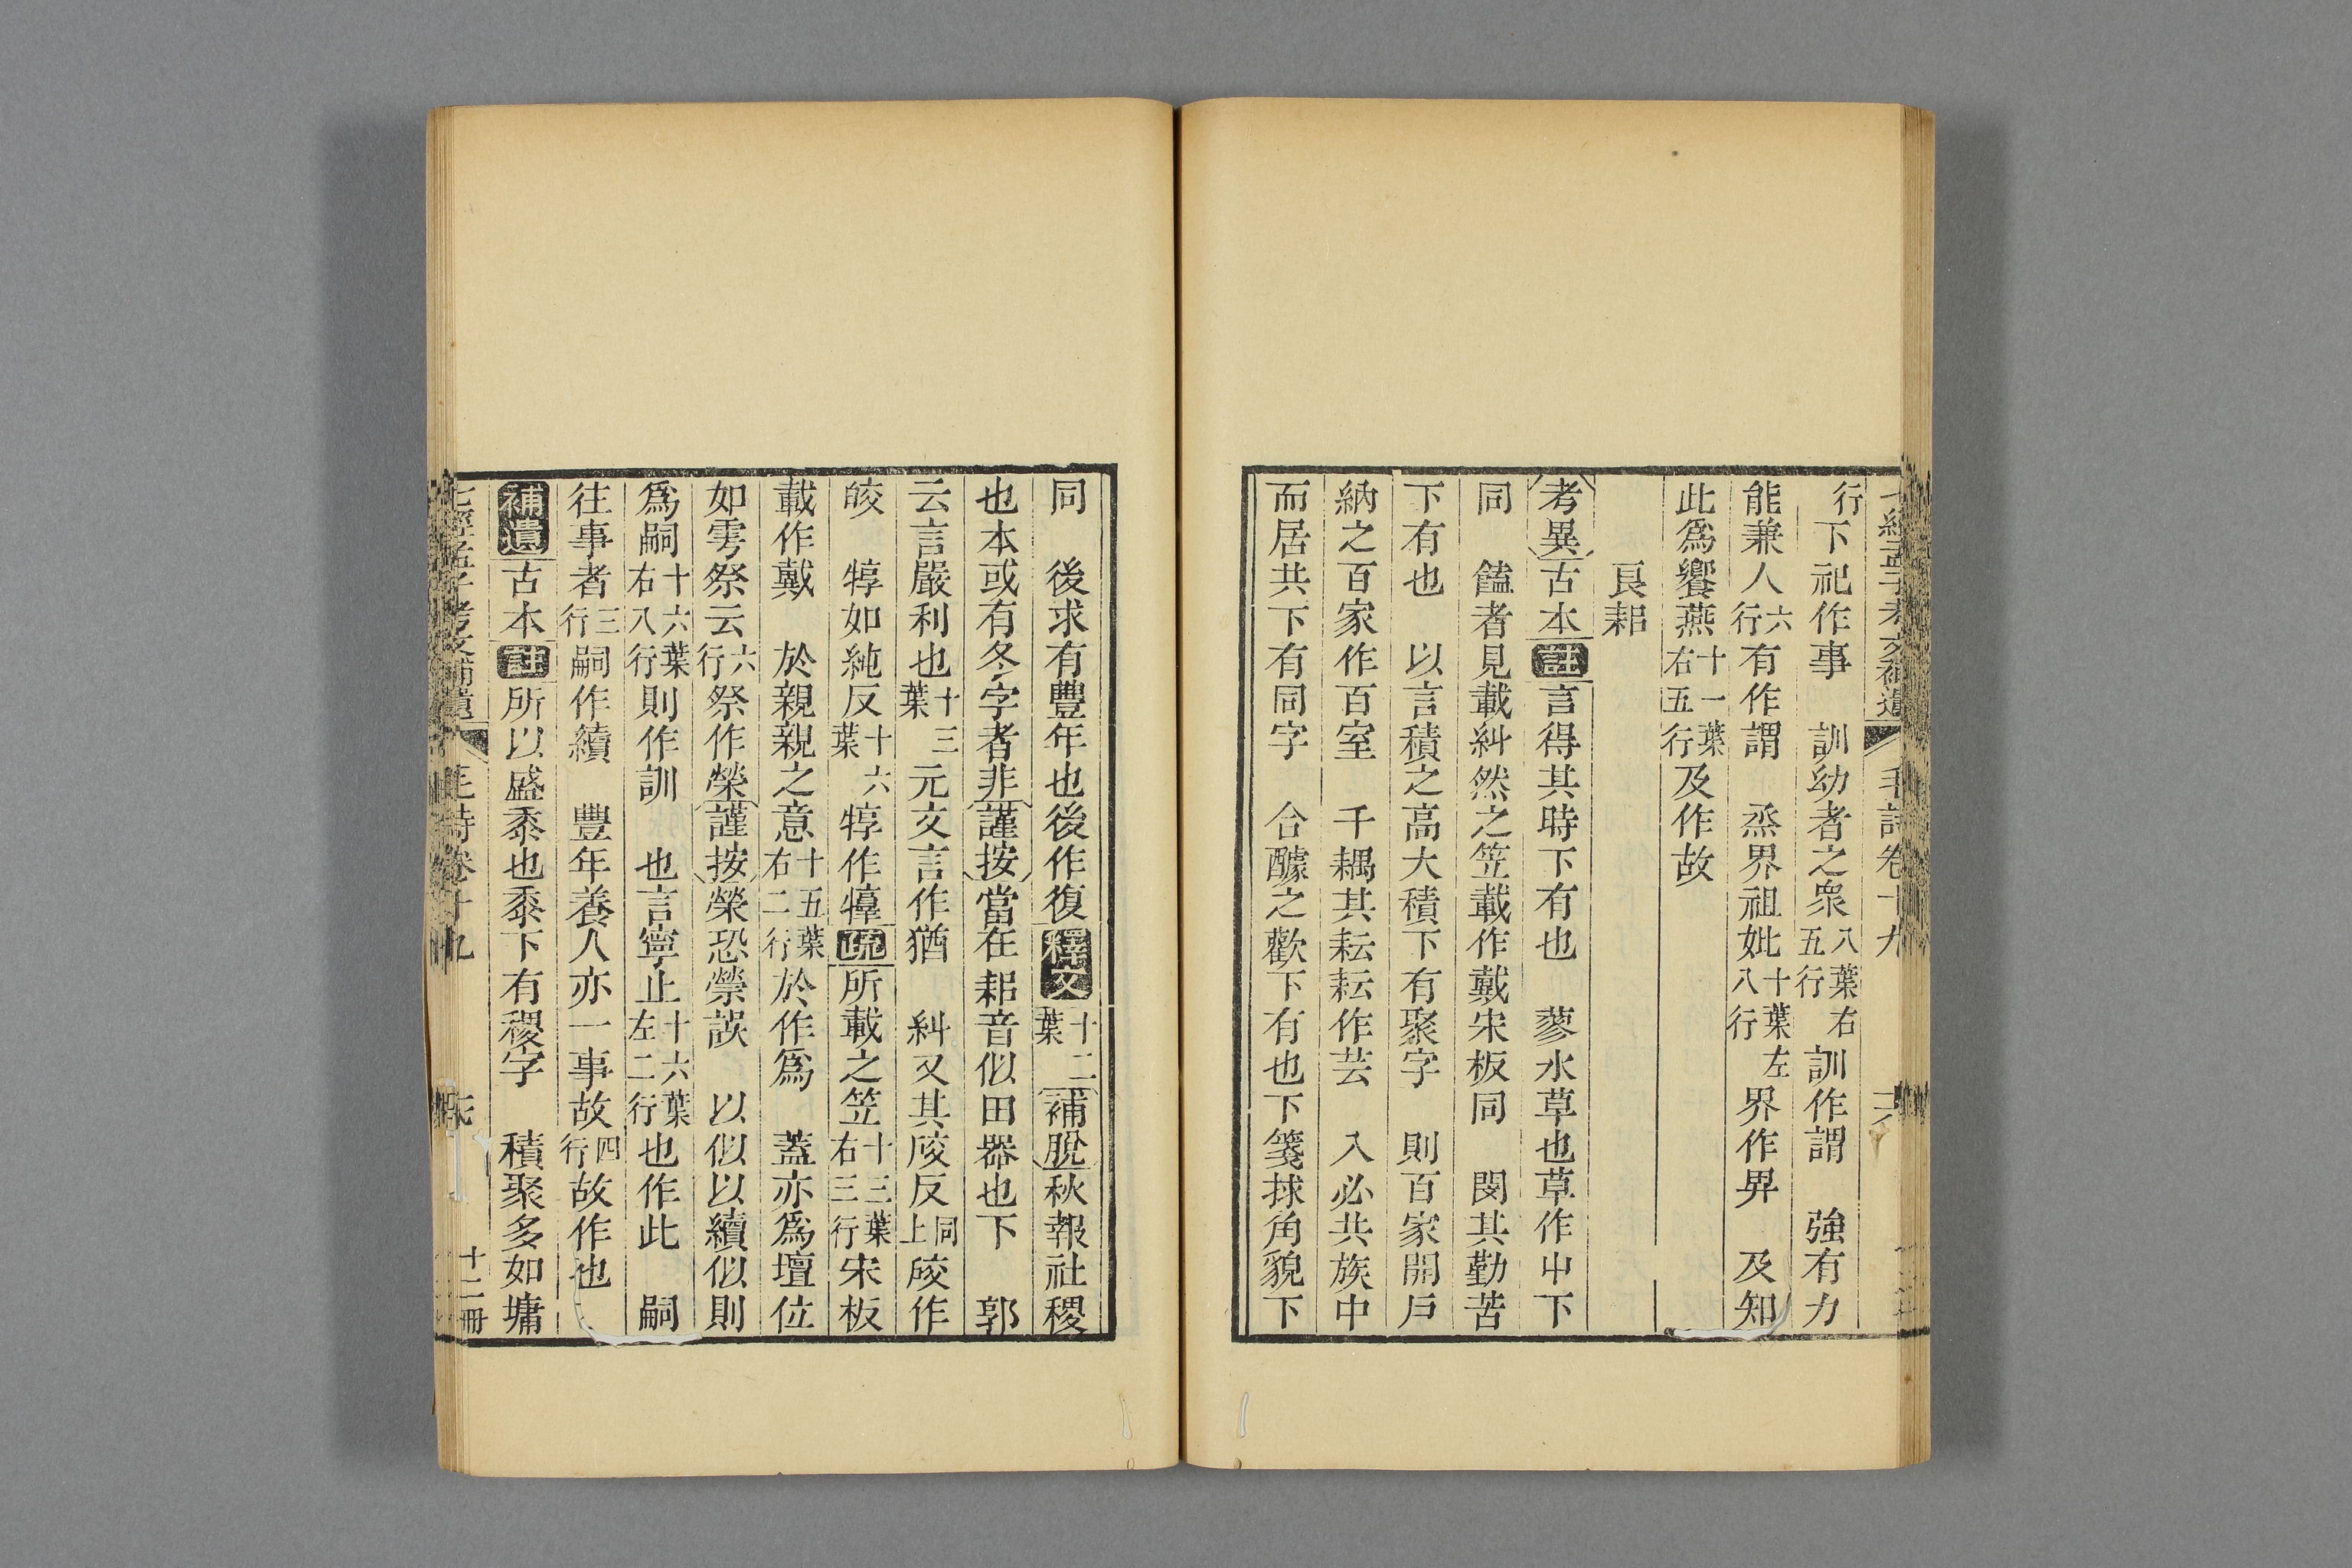 七經孟子考文補遺 毛詩卷十九
行下祀作事 訓幼者之衆八葉右五行訓作謂 強有力
能兼人六行有作謂 烝畀祖妣十葉左八行畀作畁 及知
此爲饗燕十一葉右五行及作故
良耜
考異古本註言得其時下有也 蓼水草也草作屮下
同 饁者見載糾然之笠載作戴宋板同 閔其勤苦
下有也 以言積之高大積下有聚字 則百家開戶
納之百家作百室 千耦其耘耘作芸 入必共族中
而居共下有同字 合醵之歡下有也下箋捄角貌下
同 後求有豐年也後作復釋文十二葉補脫秋報社稷
也本或有冬字者非謹按當在耜音似田器也下 郭
云言嚴利也十三葉元文言作猶 糾又其皎反同上皎作
皎 犉如純反十六葉犉作犉疏所載之笠十三葉右三行宋板
載作戴 於親親之意十五葉右二行於作爲 蓋亦爲壇位
如雩祭云六行祭作榮謹按榮恐禜誤 以似以續似則
爲嗣十六葉右八行則作訓 也言寧止十六葉左二行也作此 嗣
往事者三行嗣作續 豐年養人亦一事故四行故作也
補遺古本註所以盛黍也黍下有稷字 積聚多如墉
七經孟子考文補遺 毛詩卷十九 十二冊